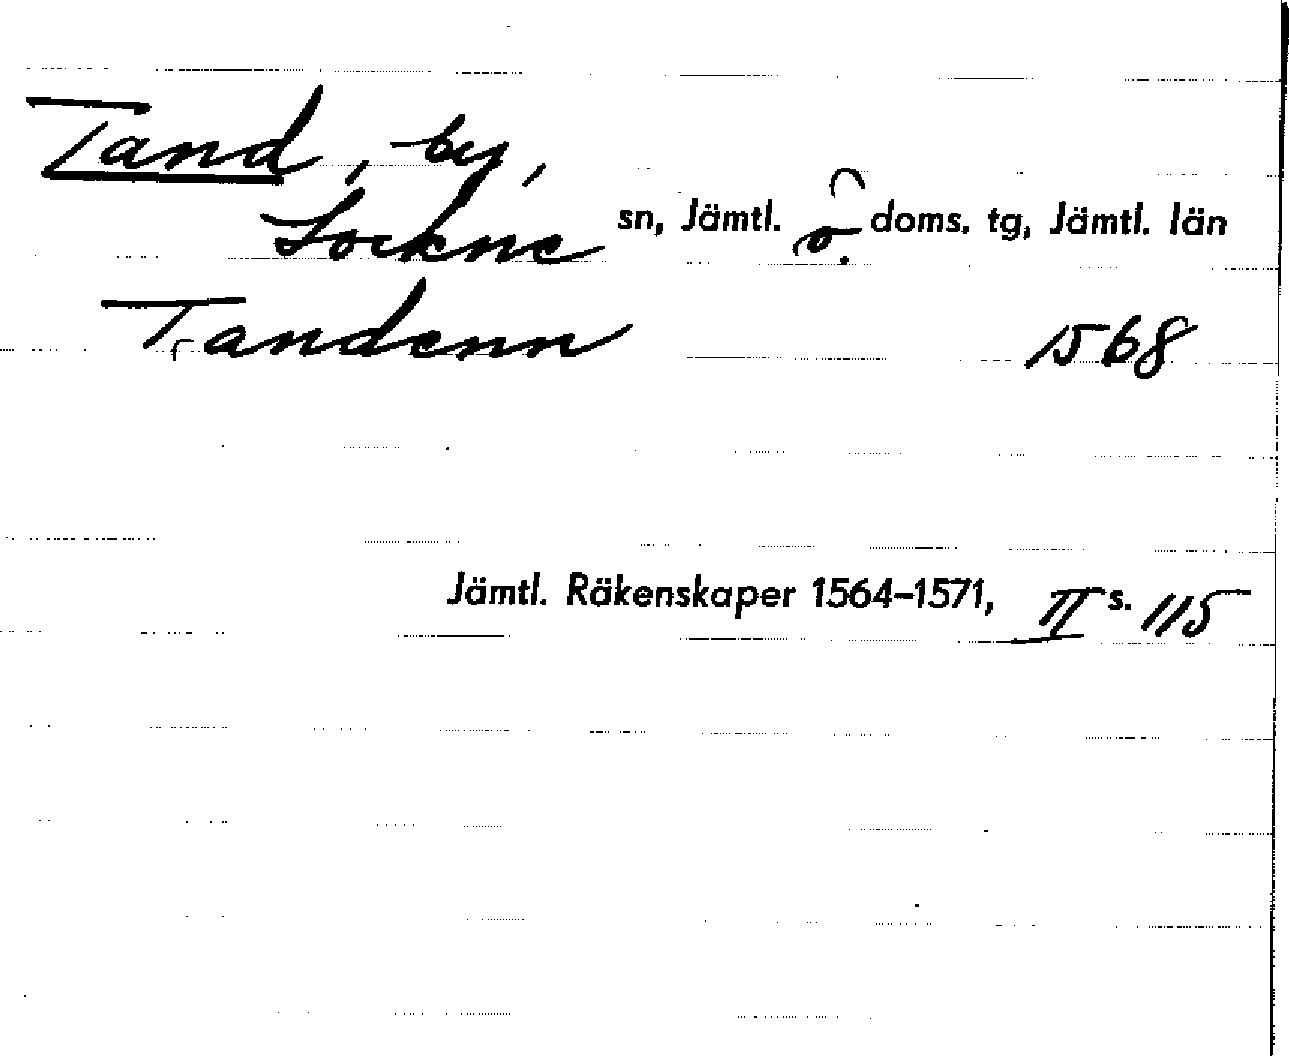 Tand, by,
Lockne sn, Jämtl. ö. doms. tg, Jämtl. län
Tandenn 1568
Jämtl. Räkenskaper 1564–1571, II s. 115